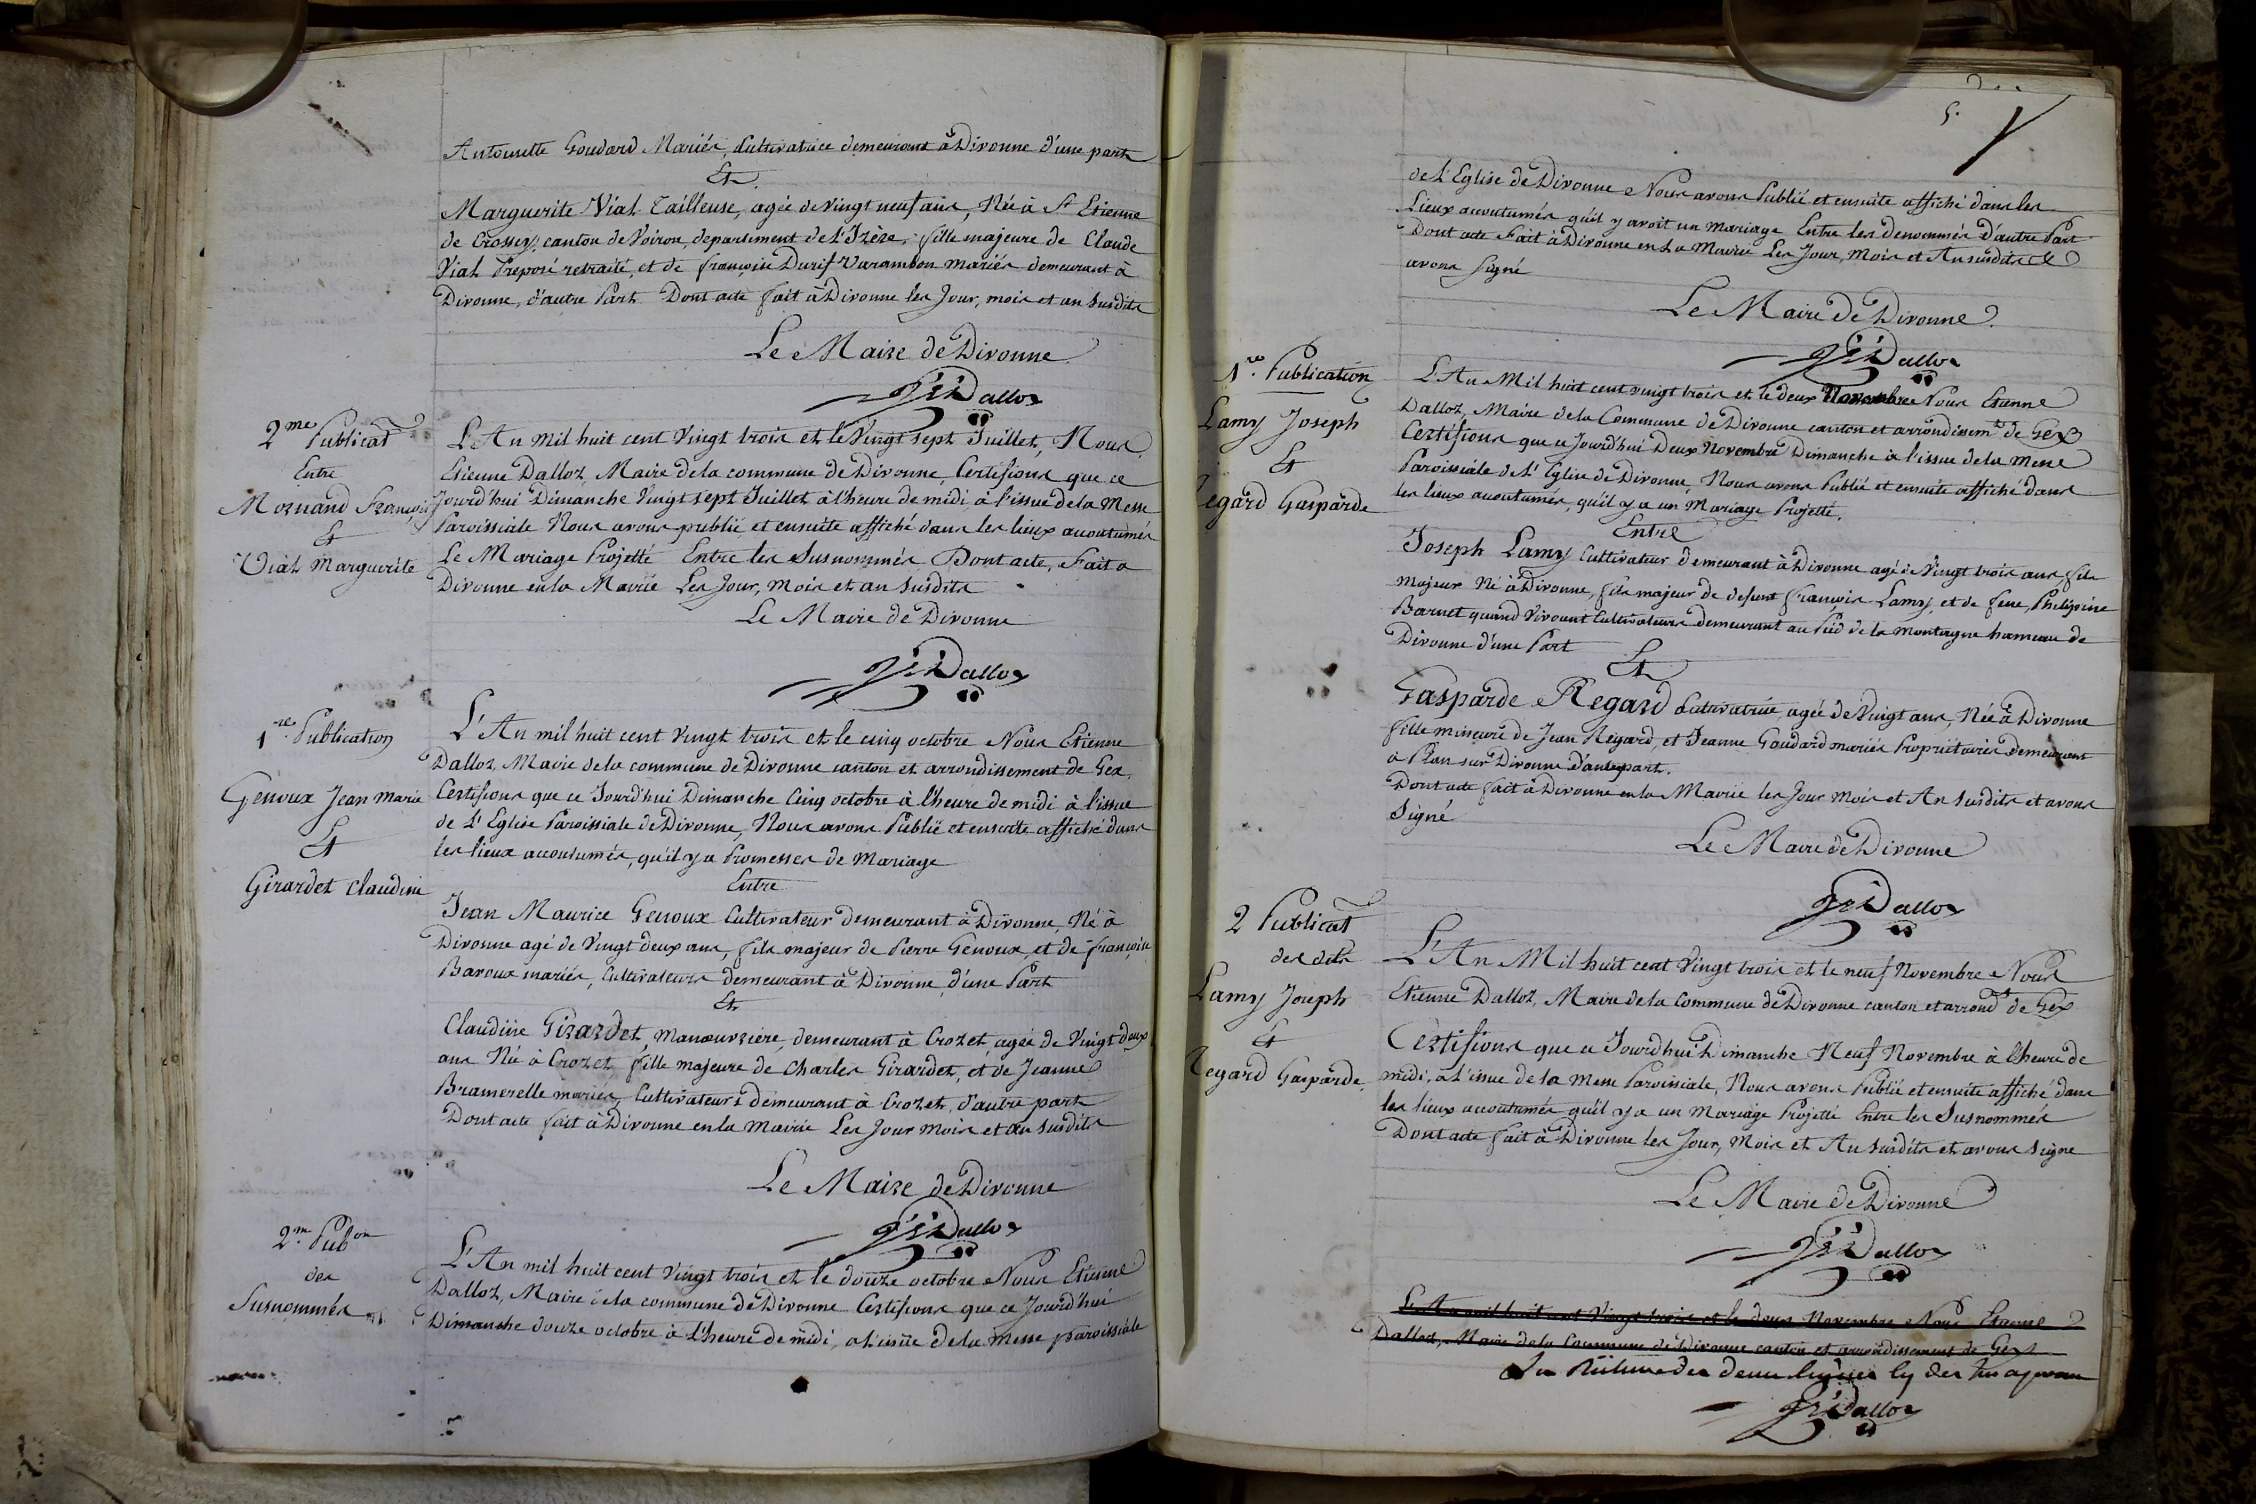 Antoinette Goudard Mariés, Cultivatrice demeurant à Divonne d'une part
Et
Marguerite Vial Tailleuse, agée de Vingt neuf ans, Née à St Etienne
de Crossey, canton de Voiron, departement de l'Izère, fille majeure de Claude
Vial Preposé retraité, et de françoise Durif Varambon mariés demeurant à
Divonne, d'autre Part. Dont acte fait à Divonne les Jour, mois et an susdits
Le Maire de Divonne
Dalloz
2me Publicat
Entre
Mornand François
Et
Vial Marguerite
L'An mil huit cent Vingt trois et le Vingt sept Juillet, Nous
Etienne Dalloz, Maire de la commune de Divonne, Certifions que ce
Jourd'hui Dimanche Vingt sept Juillet à l'heure de midi à l'issue de la Messe
Paroissiale Nous avons publié et ensuite affiché dans les lieux accoutumés
Le Mariage Projetté Entre les Susnommés Dont acte, Fait a
Divonne en la Mairie Les Jour, mois et an susdits
Le Maire de Divonne
Dalloz
1re Publication
Genoux Jean Marie
Et
Girardet Claudine
L'An mil huit cent Vingt trois et le cinq octobre Nous Etienne
Dalloz Maire de la commune de Divonne canton et arrondissement de Gex,
Certifions que ce Jourd'hui Dimanche Cinq octobre à l'heure de midi à l'issue
de L'Eglise Paroissiale de Divonne, Nous avons Publié et ensuite affiché dans
les lieux accoutumés, qu'il y a Promesses de Mariage
Entre
Jean Maurice Genoux Cultivateur demeurant à Divonne, Né à
Divonne agé de Vingt deux ans, fils majeur de Pierre Genoux, et de françoise
Baroux mariés, Cultivateurs demeurant à Divonne, d'une Part
Et
Claudine Girardet, manœuvriere, demeurant à Crozet, agée de Vingt deux
ans Née à Crozet, fille majeure de Charles Girardet, et de Jeanne
Bramerelle mariés, Cultivateurs demeurant à Crozet, d'autre part
Dont acte fait à Divonne en la Mairie Les Jour mois et an susdits
Le Maire de Divonne
Dalloz
2me Pubon
des
Susnommés
L'An mil huit cent Vingt trois et le douze octobre Nous Etienne
Dalloz, Maire de la commune de Divonne Certifions que ce Jourd'hui
Dimanche douze octobre à l'heure de midi, a l'issue de la messe paroissiale
5.
de L'Eglise de Divonne Nous avons Publié et ensuite affiché dans les
Lieux accoutumés qu'il y avoit un mariage Entre les denommés d'autre Part
Dont acte Fait à Divonne en La Mairie Les Jour, Mois et An susdits et
avons signé
Le Maire de Divonne
Dalloz
1re Publication
Lamy Joseph
Et
Regard Gasparde
L'An Mil huit cent vingt trois et le deux Novembre Nous Etienne
Dalloz, Maire de la Commune de Divonne canton et arrondissemt de Gex
Certifions que ce Jourd'hui Deux Novembre Dimanche à l'issue de la Messe
Paroissiale de L'Eglise de Divonne, Nous avons Publié et ensuite affiché dans
les lieux accoutumés, qu'il y a un Mariage Projetté,
Entre
Joseph Lamy Cultivateur demeurant à Divonne agé de Vingt trois ans, fils
majeur Né à Divonne, fils majeur de defunt françois Lamy, et de feue Philipine
Barnet quand Vivoient Cultivateurs demeurant au Pied de la Montagne hameau de
Divonne d'une Part
Et
Gasparde Regard Cultivatrice, agée de Vingt ans, Née à Divonne
fille mineure de Jean Regard, et Jeanne Goudard mariés Propriétaires demeurant
à Plan sur Divonne d'autre part.
Dont acte fait à Divonne en la Mairie les Jour Mois et An susdits et avons
Signé
Le Maire de Divonne
Dalloz
2 Publicat
des dits
Lamy Joseph
Et
Regard Gasparde
L'An Mil huit cent Vingt trois et le neuf Novembre Nous
Etienne Dalloz, Maire de la Commune de Divonne canton et arrondt de Gex
Certifions que ce Jourd'hui Dimanche Neuf Novembre à l'heure de
midi, à l'issue de la Messe Paroissiale, Nous avons Publié et ensuite affiché dans
les lieux accoutumés qu'il y a un Mariage Projetté Entre les Susnommés
Dont acte fait à Divonne les Jour, Mois et An susdits et avons signé
Le Maire de Divonne
Dalloz
L'An mil huit cent Vingt trois et le Novembre Nous Etienne
Dalloz, Maire de la Commune de Divonne canton et arrondissement de Gex
deux lignes
Dalloz